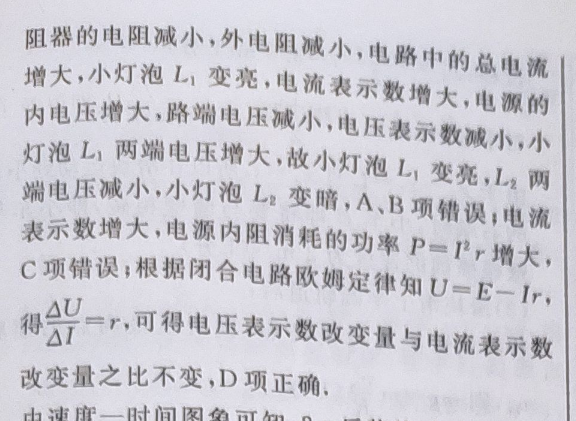 阻器的电阻减小,外电阻减小,电路中的总电流
增大,小灯泡 L₁ 变亮,电流表示数增大,电源的
内电压增大、路端电压减小,电压表示数减小,小
灯泡 L₁ 两端电压增大,故小灯泡 L₁ 变亮,L₂ 两
端电压减小,小灯泡 L₂ 变暗,A、B 项错误;电流
表示数增大,电源内阻消耗的功率 P=I²r 增大,
C 项错误;根据闭合电路欧姆定律知 U=E-Ir,
得ΔU/ΔI=r,可得电压表示数改变量与电流表示数
改变量之比不变,D 项正确.
由速度—时间图象可知